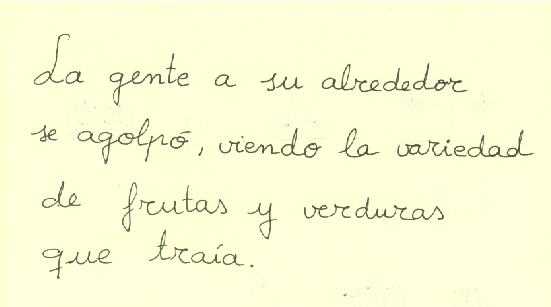 La gente a su alrededor
se agolpó, viendo la variedad
de frutas y verduras
que traía.